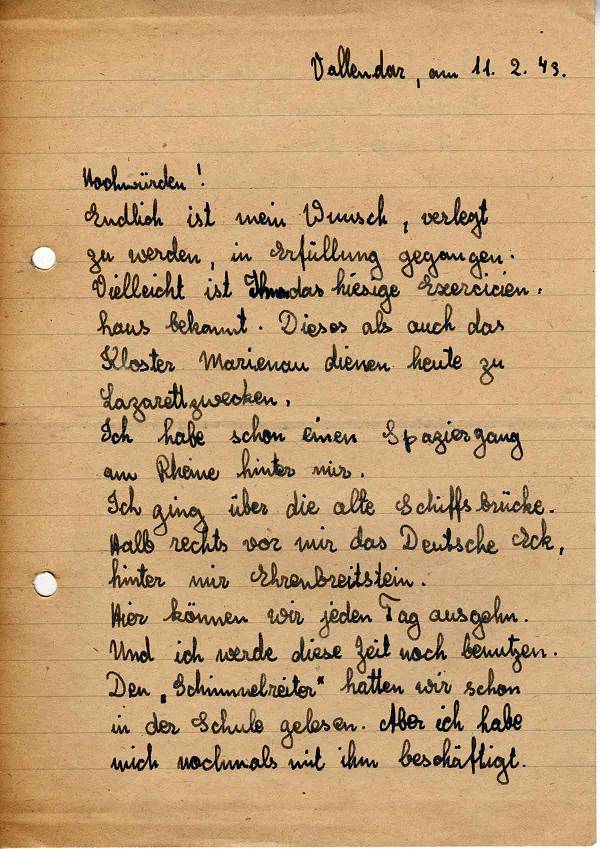 Vallendar, am 11. 2. 43.
Hochwürden!
Endlich ist mein Wunsch, verlegt
zu werden, in Erfüllung gegangen.
Vielleicht ist Ihnen das hiesige Exercicien-
haus bekannt. Dieses als auch das
Kloster Marienau dienen heute zu
Lazarettzwecken.
Ich habe schon einen Spaziergang
am Rheine hinter mir.
Ich ging über die alte Schiffsbrücke.
Halb rechts vor mir das Deutsche Eck,
hinter mir Ehrenbreitstein.
Hier können wir jeden Tag ausgehn.
Und ich werde diese Zeit noch benutzen.
Den „Schimmelreiter“ hatten wir schon
in der Schule gelesen. Aber ich habe
mich nochmals mit ihm beschäftigt.